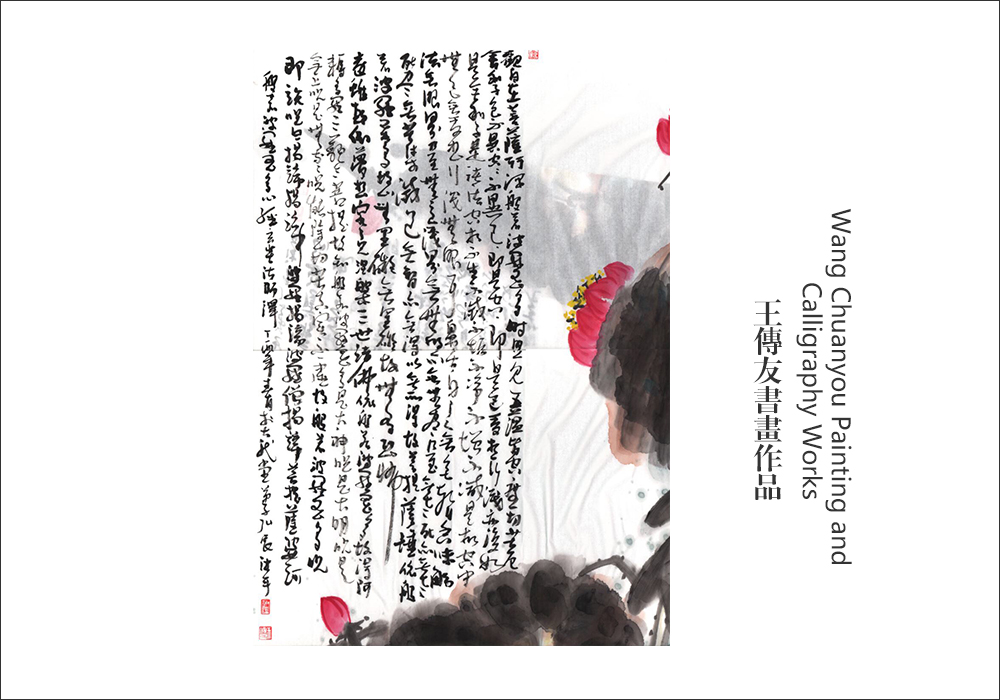 觀自在菩薩行深般若波羅蜜多時照見五蘊皆空度一切苦厄
舍利子色不異空空不異色色即是空空即是色受想行識亦復如
是舍利子是諸法空相不生不滅不垢不淨不增不減是故空中
無色無受想行識無眼耳鼻舌身意無色聲香味觸
法無眼界乃至無意識界無無明亦無無明盡乃至無老死亦無老
死盡無苦集滅道無智亦無得以無所得故菩提薩埵依般
若波羅蜜多故心無罣礙無罣礙故無有恐怖
遠離顛倒夢想究竟涅槃三世諸佛依般若波羅蜜多故得阿
耨多羅三藐三菩提故知般若波羅蜜多是大神咒是大明咒是
無上咒是無等等咒能除一切苦真實不虛故說般若波羅蜜多咒
即說咒曰揭諦揭諦波羅揭諦波羅僧揭諦菩提薩婆訶
般若波羅蜜多心經玄奘法師譯
Wang Chuanyou Painting and
Calligraphy Works
王傳友書畫作品